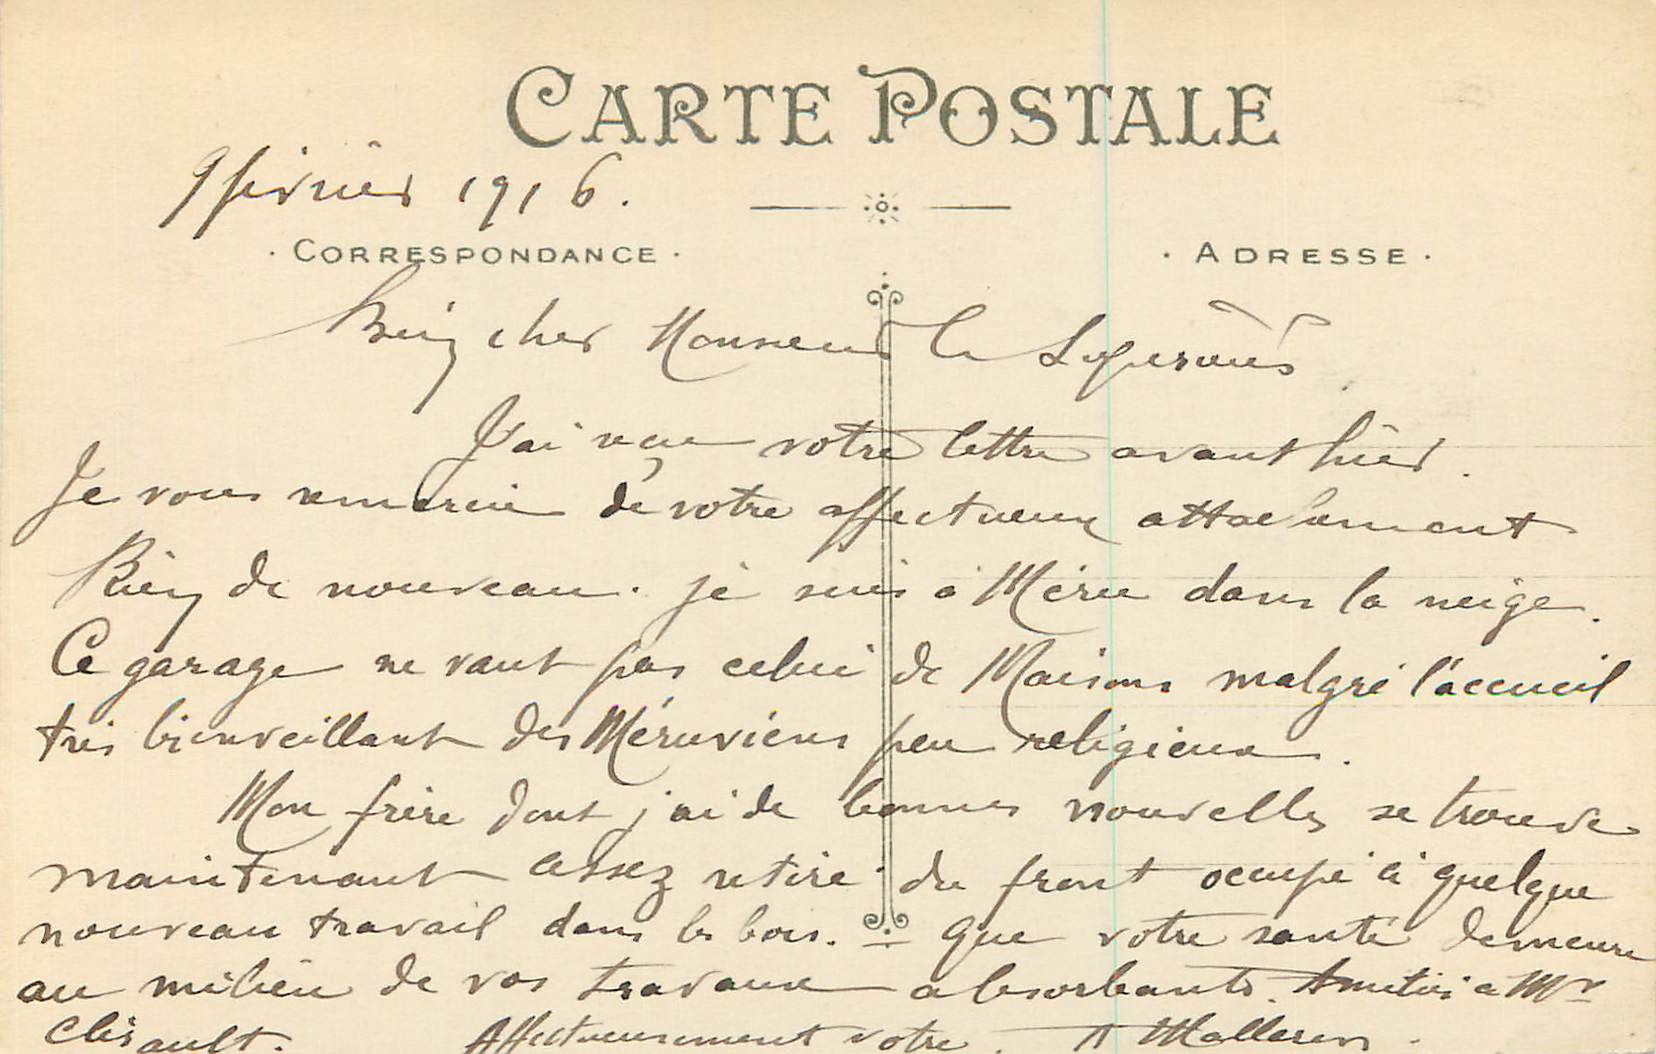 CARTE POSTALE
9 février 1916.
· CORRESPONDANCE ·
· ADRESSE ·
Bien cher Monsieur le
J'ai reçu votre lettre avant hier.
Je vous remercie de votre affectueux attachement
Rien de nouveau. je suis à Méru dans la neige.
Ce garage ne vaut pas celui de Maisons malgré l'accueil
très bienveillant des Méruviens peu religieux.
Mon frère dont j'ai de bonnes nouvelles se trouve
maintenant assez retiré du front occupé à quelque
nouveau travail dans les bois. = Que votre santé demeure
au milieu de vos travaux absorbants. Amitiés à Mr
Affectueusement votre. A